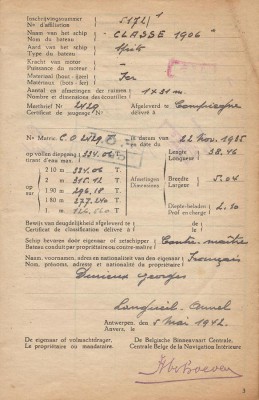 Inschrijvingsnummer
N° d'affiliation
5172
Naam van het schip
Nom du bateau
"CLASSE 1906"
Aard van het schip
Type du bateau
Spits
Kracht van motor
Puissance du moteur
Materiaal (hout - ijzer)
Matériaux (bois - fer)
Fer
Aantal en afmetingen der ruimen
Nombre et dimensions des écoutilles
1 x 21 m.
Meetbrief N° 2429 Afgeleverd te Compiègne
Certificat de jaugeage N° délivré à
N° Matric. C.O. 2429 F. in datum van 22 Nov. 1935
en date du
op vollen diepgang 334.06 T.
tirant d'eau max.
Lengte
Longueur
38.46
op
sur
2 10 m 334.06 T.
2 m 315.12 T.
1 90 m 296.18 T.
1 80 m 277.240 T.
1 m. T.
Afmetingen
Dimensions
Breedte
Largeur
5.04
Diepte-beladen
Prof. en charge
2.10
Bewijs van deugdelijkheid afgeleverd te
Certificat de classification délivré à
Schip bevaren door eigenaar of zetschipper
Bateau conduit par propriétaire ou contre-maître
Contre-maître
Naam, voornamen, adres en nationaliteit van den eigenaar
Nom, prénoms, adresse et nationalité du propriétaire
Français
Georges
Longueil-Annel
Antwerpen, den
Anvers, le
5 Mai 1942.
De eigenaar of volmachtdrager,
Le propriétaire ou mandataire,
De Belgische Binnenvaart Centrale,
Centrale Belge de la Navigation Intérieure
3